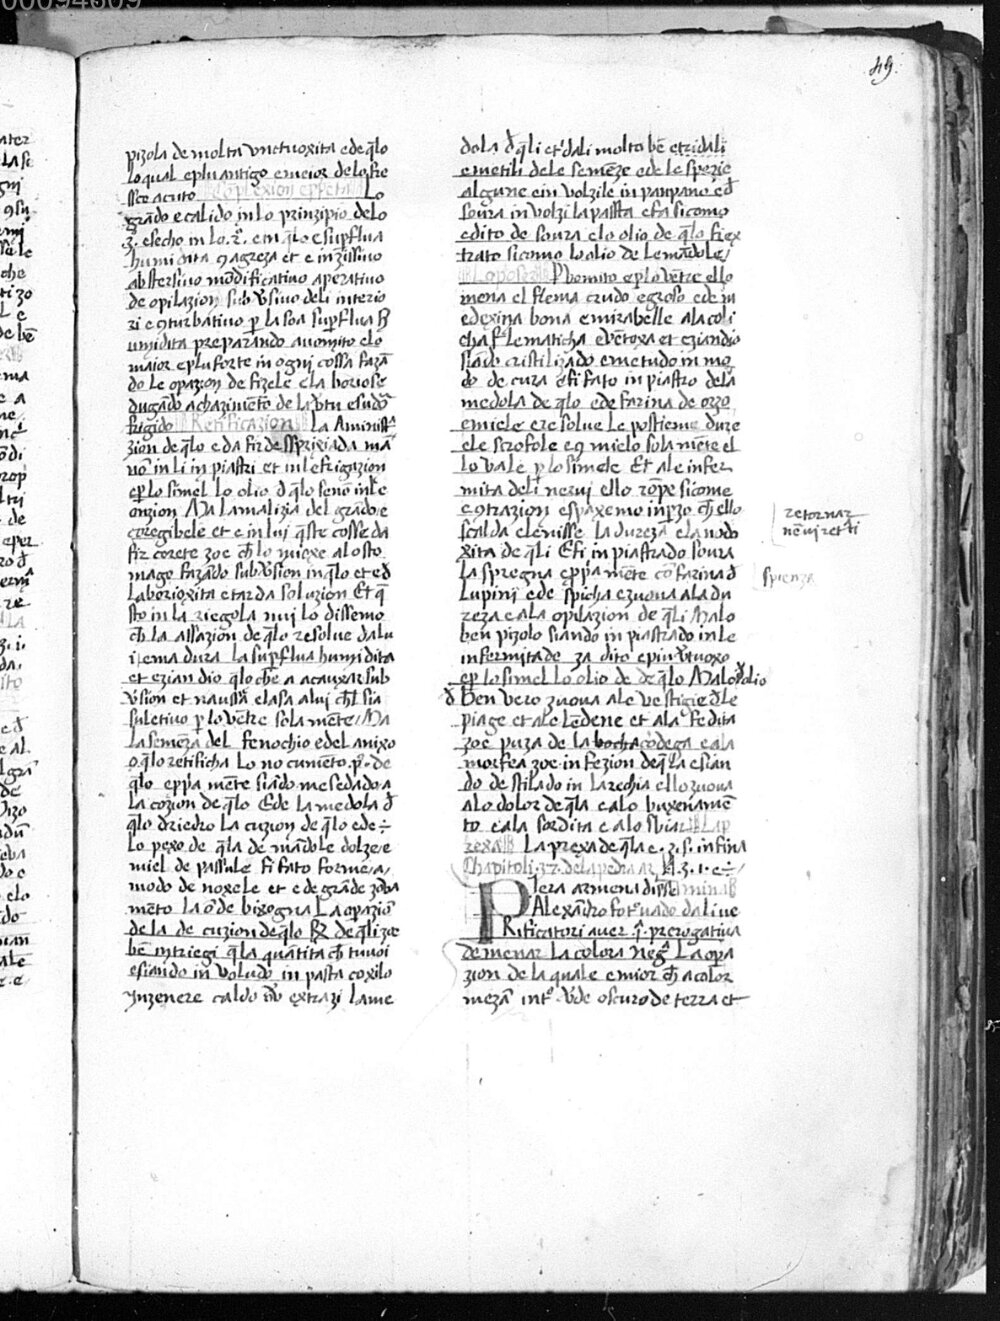 49.
pizola de molta vnctuoxita ede q̄lo
lo qual eplu antigo emeior delo fre
sco acuto Cōplexion eppetā Lo
grādo e calido in lo prinzipio delo
3. esecho in lo .2. e in q̄lo e sup̄flua
humidita 9 agreza et e inzissiuo
abstersiuo mōdificatiuo aperatiuo
de opilazion subv̄siuo deli interio
ri e 9turbatiuo p̱ la soa sup̄flua h̄
umidita preparando auomito elo
maior eplu forte in ogni cossa fazā
do le opazion de fizele ela boriose
dugādo achazimēto de la v̄tu esudō
frigido Retificazion La Aminist
zion de q̄lo e da fir desspixiada mā
uō in li in piastri et in lefrigazion
ep̱ lo simel lo olio d̄ q̄lo seno in le
onzion Ma la malizia del grādo e
coregibele et e in lui q̄ste cosse da
fir corete zoe ch̄ lo nioxe al osto
mago fazādo subv̄sion in q̄lo et ed̄
laborioxita e tarda soluzion Et q̄
sto in la riegola nui lo dissemo
ch̄ la assazion de q̄lo resolue dalu
i tema dura la sup̄flua humidita
et ezian dio q̄lo che a acauxar sub
v̄sion et naussa elasa alui ch̄l sia
suletiuo p̱ lo vētre sola mēte Ma
la semēza del fenochio edel anixo
o q̄lo retificha lo no cumēto p̱. de
q̄lo eppa mēte siādo mesedado a
la cozion de q̄lo Ede la medola d̄
q̄lo driedro la cuzion de q̄lo ede ÷
lo pexo de q̄la de mādole dolze e
miel de passule fi fato forme a
modo de noxele et e de grāde zoba
mēto la ō de bixogna La opazio
de la de cuzion de q̄lo ℞ de q̄li zoe
bē intriegi q̄la quātita ch̄ tu uoi
esiando in voludo in pasta coxilo
inzenere caldo dr̄o extrazi la me
dola d̄ q̄li et dali molto bē etridali
emetili dele semēze ede le spezie
algune ein volzile in panpano ed̄
soura in volzi la passta efa sicomo
edito de soura elo olio de q̄lo fi ex
trato sicomo lo olio de le mādole
Lo posere P̱ bomito ep̱ lo vētre ello
mena el flema crudo egroso ede m
edexina bona emirabelle ala coli
cha flematicha evētoxa et eziandio
siādo cristilizado emetudo in mo
do de cura efi fato in piastro dela
medola de q̄lo ede farina de orzo
emiele eresolue le posteme dure
ele scrofole e 9 miele sola mēte el
lo vale p̱ lo simele Et ale infer
mita deli nerui ello rōpe sicome
e 9trazion espaxemo inp̱zo ch̄ ello
scalda elenisse la dureza ela nodo
xita de q̄li Efi in piastrado soura
la spregna eppa mēte cō farina d̄
lupini e de spicha ezuoua ala du
reza e ala opilazion de q̄li Ma lo
ben pizolo siando in piastrado in le
infermitade za dito epiu v̄tuoxo
ep̱ lo simel lo olio de de q̄lo Ma lo olio
d̄ Ben vero zuoua ale vestigie d̄ le
piage et ale lēdene et ala fedita
zoe puza de la bocha codega e ala
morfea zoe infezion de q̄la esian
do destilado in la rechia ello zuoua
alo dolor de q̄la e alo buxenamē
to e ala sordita e alo sviar La p
rexa La prexa de q̄la e .2. s. infina
Chapitoli .37. de la pedra ar A .3. 1. e ÷
Piera armena disse mina
Alexādro fo trouado dali ue
Rificatori auer q̄. prerogatiua
de menar la colora neḡ. La opa
zion de la quale emior ch̄ a color
mezā intº. v̄de oscuro de terra et
retornar
nerui retti
spienza